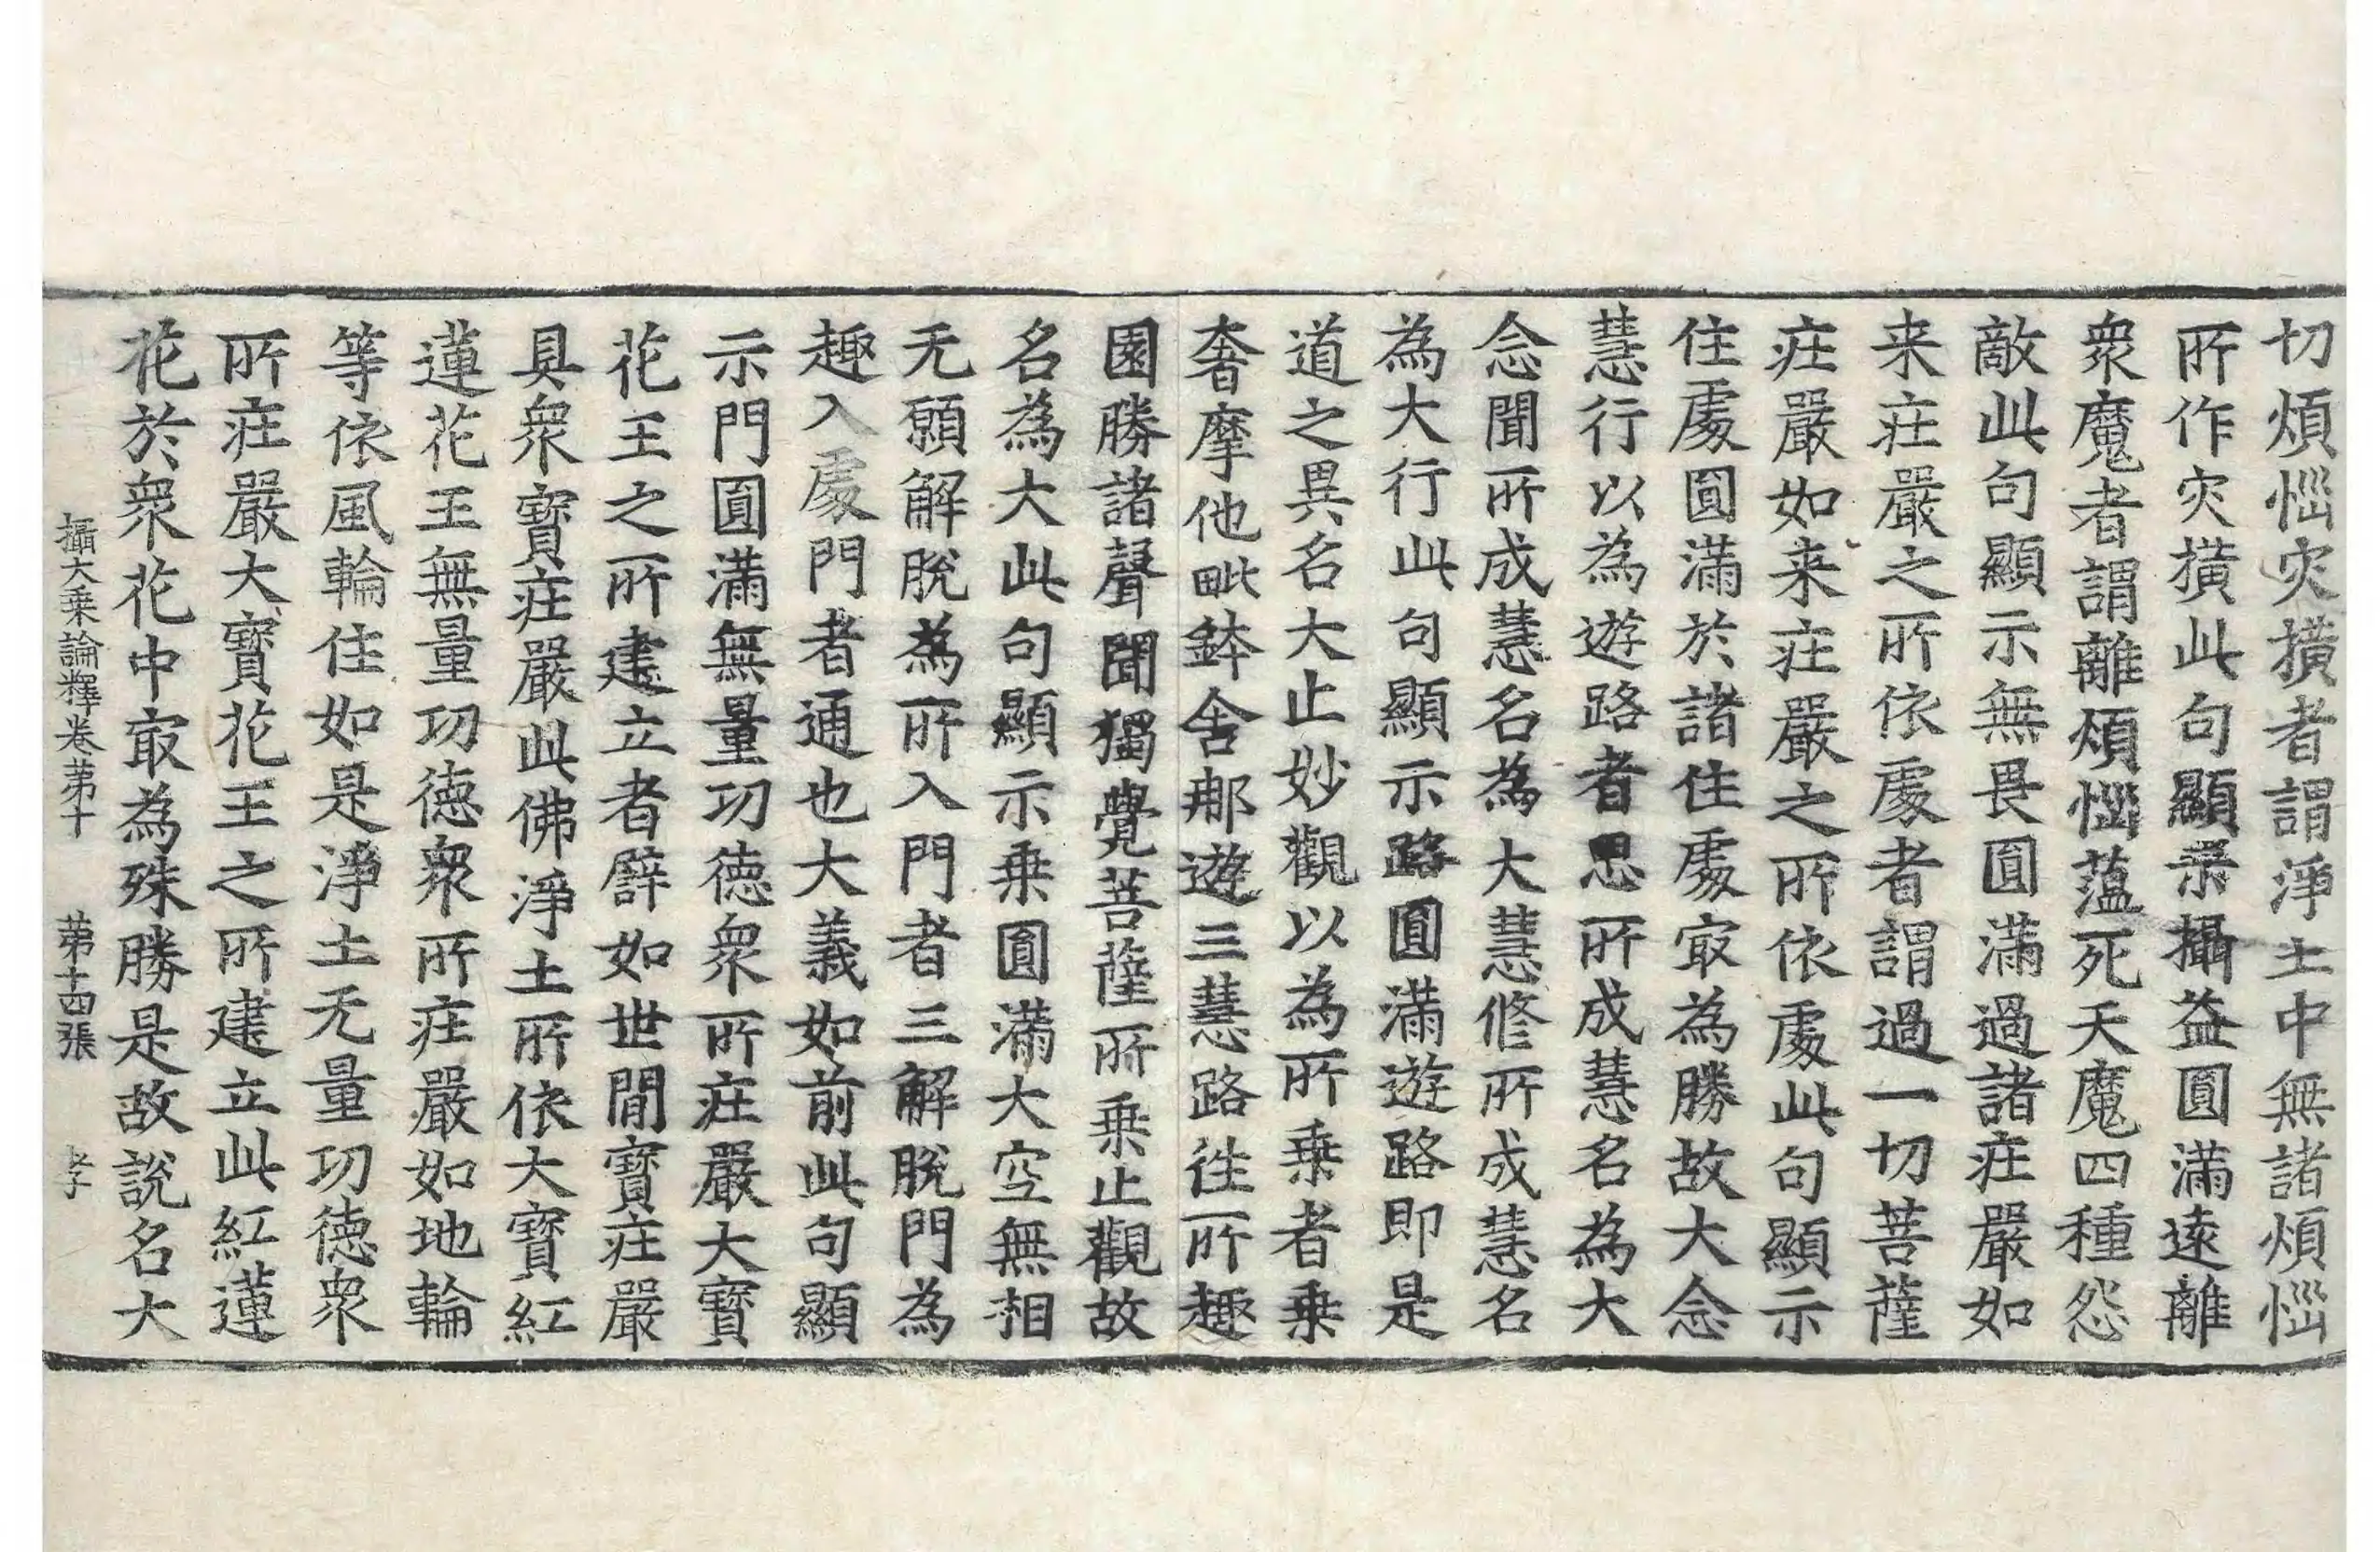 切煩惱灾撗者謂淨土中無諸煩惱
所作灾撗此句顯示攝益圓滿遠離
衆魔者謂離煩惱蘊死天魔四種怨
敵此句顯示無畏圓滿過諸莊嚴如
来莊嚴之所依處者謂過一切菩薩
莊嚴如来莊嚴之所依處此句顯示
住處圓滿於諸住處㝡為勝故大念
慧行以為遊路者思所成慧名為大
念聞所成慧名為大慧修所成慧名
為大行此句顯示路圓滿遊路即是
道之異名大止妙觀以為所乗者乗
奢摩他毗鉢舍那遊三慧路徃所趣
園勝諸聲聞獨覺菩薩所乗止觀故
名為大此句顯示乗圓滿大空無相
无願解脫為所入門者三解脫門為
趣入處門者通也大義如前此句顯
示門圓滿無量功德衆所莊嚴大寶
花王之所建立者譬如世間寶莊嚴
具衆寶莊嚴此佛淨土所依大寶紅
蓮花王無量功德衆所莊嚴如地輪
等依風輪住如是淨土无量功德衆
所莊嚴大寶花王之所建立此紅蓮
花於衆花中㝡為殊勝是故說名大
攝大乗論釋卷苐十 苐十四張 孝